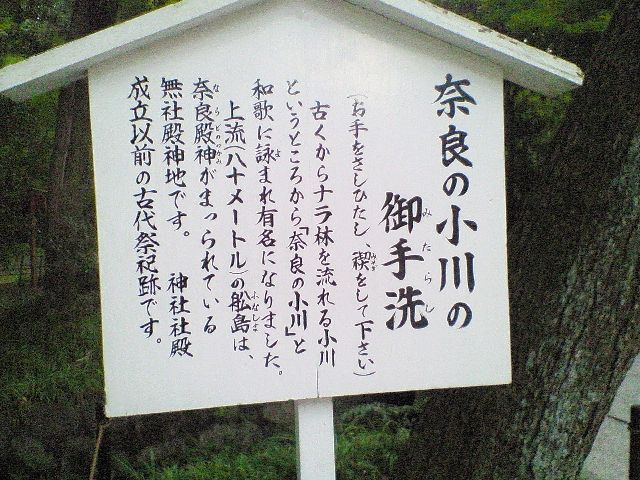 奈良の小川の
御手洗
みたらし
(お手をさしひたし、禊をして下さい)
みそぎ
古くからナラ林を流れる小川
というところから「奈良の小川」と
和歌に詠まれ有名になりました。
よ
上流(八十メートル)の舩島は、
ふなしま
奈良殿神がまつられている
ならどのかみ
無社殿神地です。 神社社殿
成立以前の古代祭祀跡です。